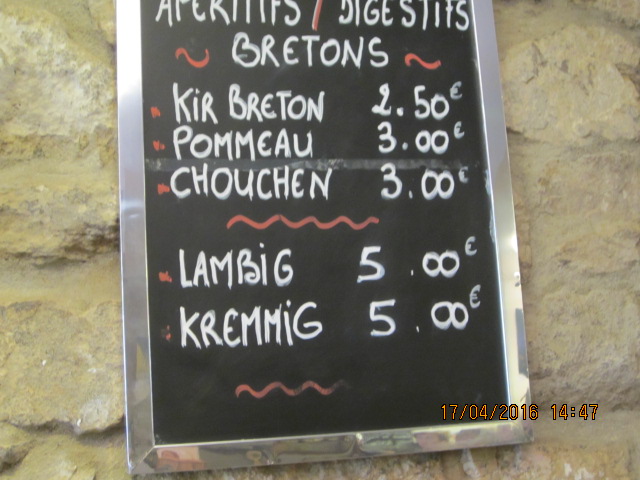 APÉRITIFS / DIGESTIFS
~ BRETONS ~
KIR BRETON 2.50€
POMMEAU 3.00€
CHOUCHEN 3.00€
LAMBIG 5.00€
KREMMIG 5.00€
17/04/2016 14:47